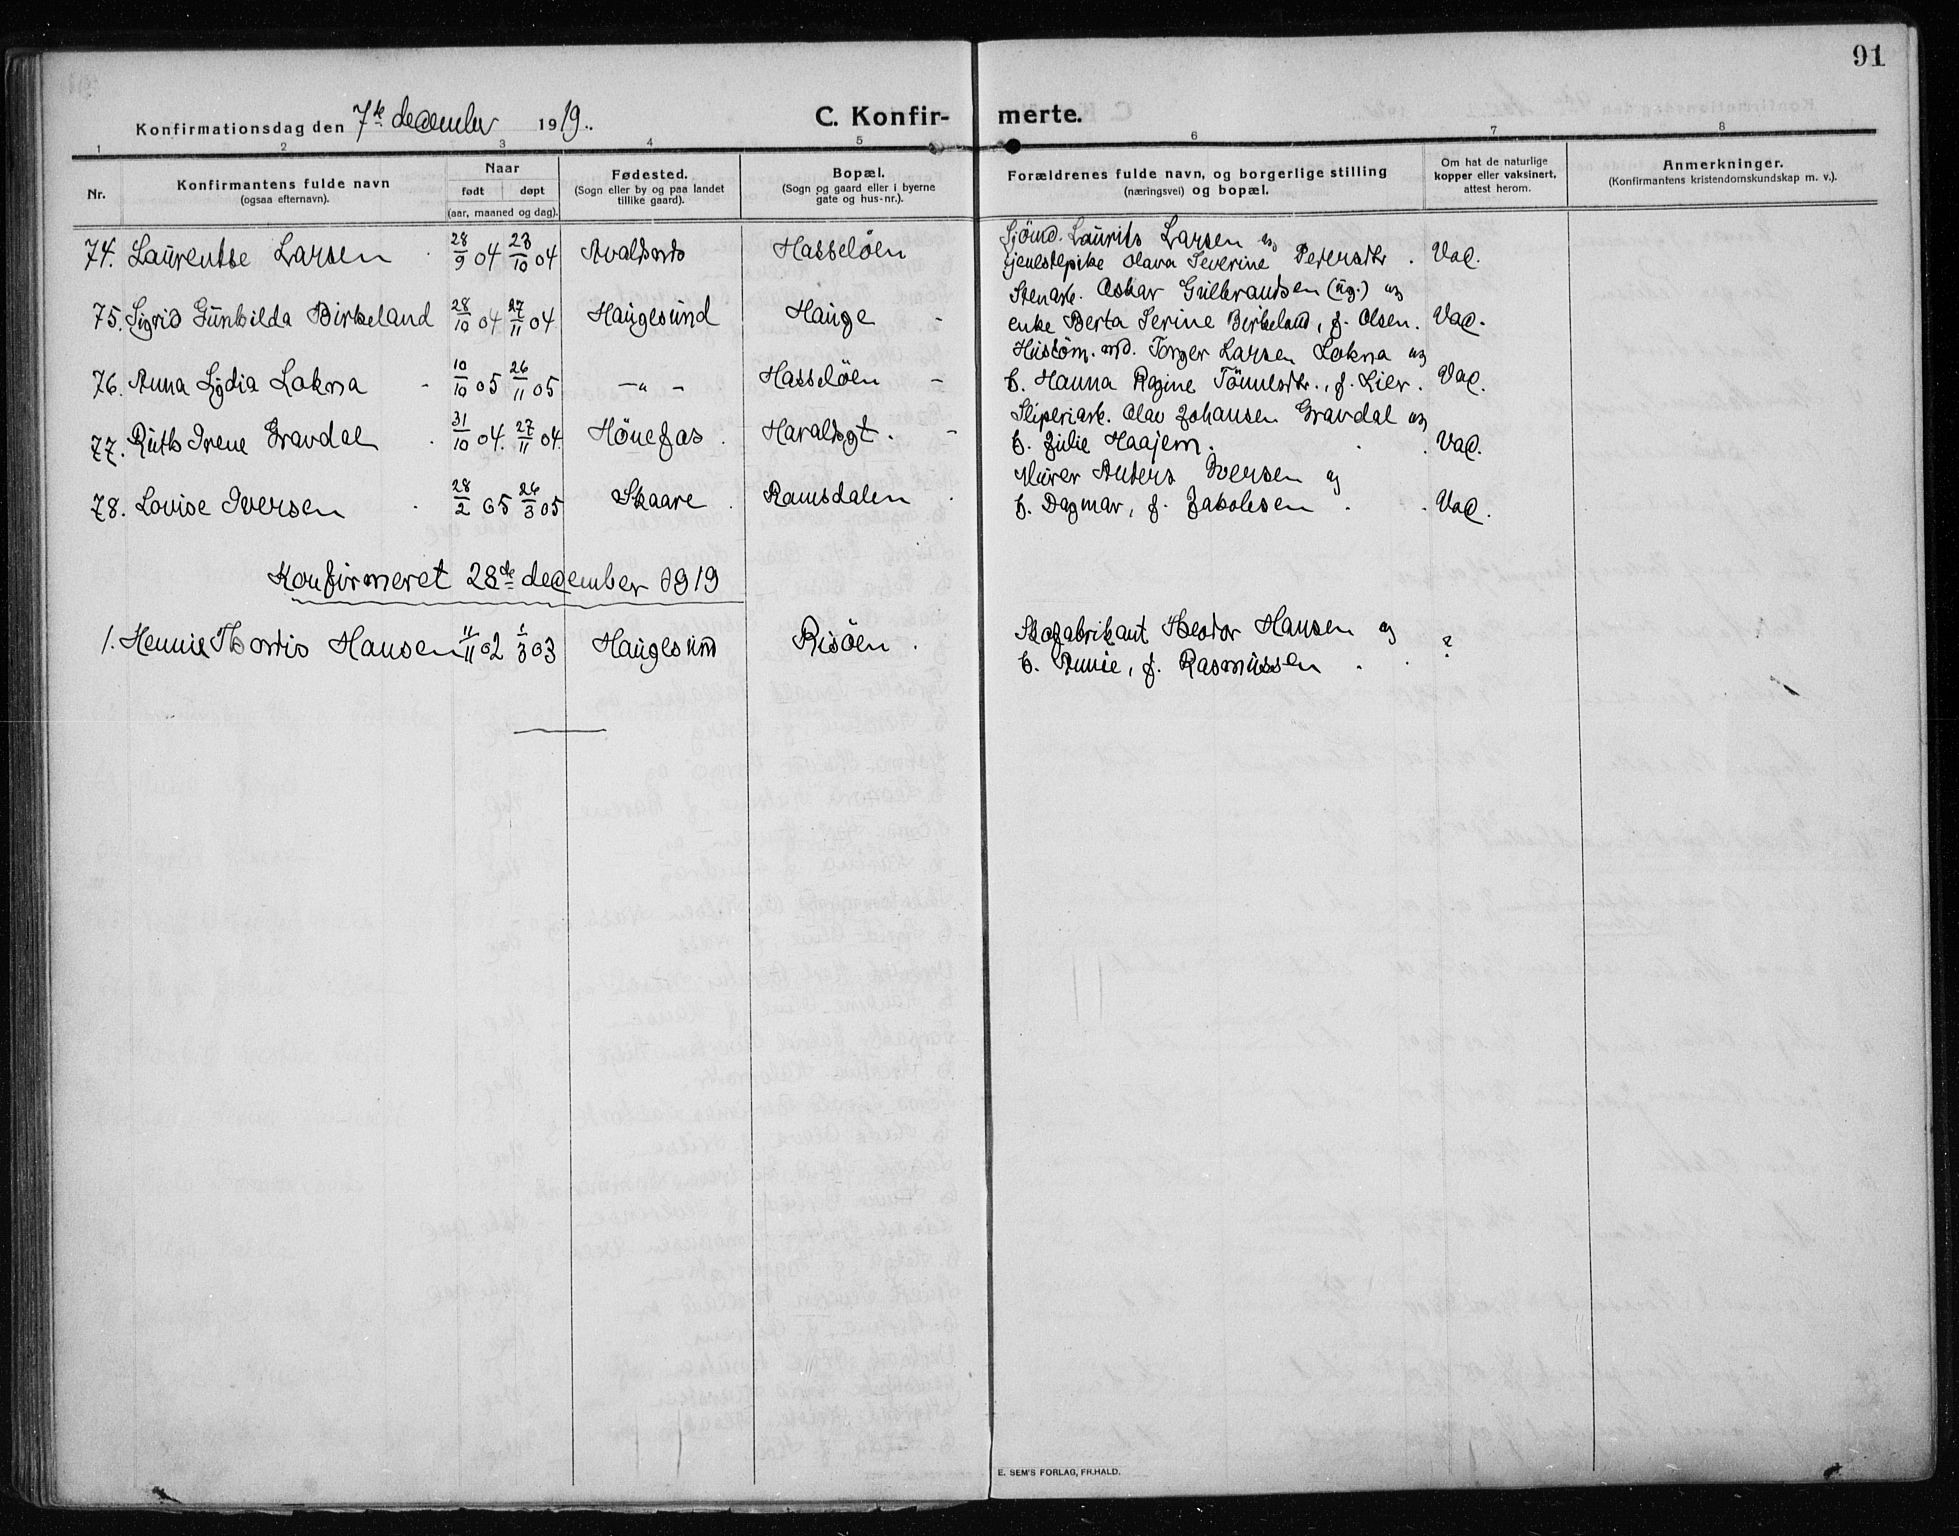 91
Konfirmationsdag den 7de december 1919.
C. Konfirmerte.
1 2 3 4 5 6 7 8
Nr.
Konfirmantens fulde navn
(ogsaa efternavn).
Naar
født døpt
(aar, maaned og dag).
Fødested.
(Sogn eller by og paa landet
tillike gaard).
Bopæl.
(Sogn og gaard eller i byerne
gate og hus-nr.).
Forældrenes fulde navn, og borgerlige stilling
(næringsvei) og bopæl.
Om hat de naturlige
kopper eller vaksinert,
attest herom.
Anmerkninger.
(Konfirmantens kristendomskundskap m. v.).
74. Laurentse Larsen 28/9 04 23/10 04 Avaldsnes Hasseløen
Sjömd. Laurits Larsen og
tjenestepike Olava Severine Pedersdtr. Vac.
75. Sigrid Gunhilda Birkeland 28/10 04 27/11 04 Haugesund Hauge -
Stenarb. Oskar Gulbrantsen (ug.) og
enke Berta Serine Birkeland, f. Olsen. Vac.
76. Anna Lydia Lokna - 10/10 05 26/11 05 -"- Hasseløen -
Hustöm. md. Torger Larsen Lokna og
h. Hanna Regine Tönnesdtr., f. Lier. Vac.
77. Ruth Irene Gravdal 31/10 04. 27/11 04. Hønefos. Haraldsgt. -
Sliperiarb. Olav Johansen Gravdal og
h. Julie Haajem. Vac.
78. Lovise Iversen 28/2 05 26/3 05 Skaare. Ramsdalen.
Murer Anders Iversen og
h. Dagmar, f. Jakobsen. Vac.
Konfirmeret 28de december 1919
1. Hennie Thordis Hansen 11/11 02 1/3 03 Haugesund Risöen.
Skofabrikant Theodor Hansen og
h. Annie, f. Rasmussen. ?
E. SEM'S FORLAG, FR.HALD.